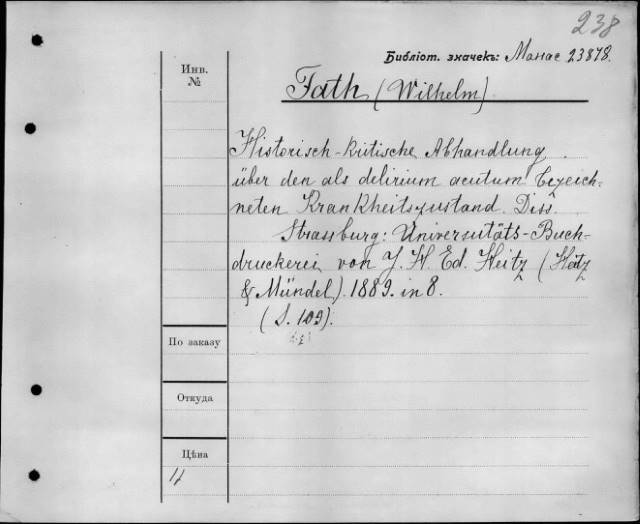 238
Библіот. значекъ: Манас 23878.
Инв.
№
Fath (Wilhelm)
Historisch-kritische Abhandlung
über den als delirium acutum bezeich-
neten Krankheitszustand. Diss.
Strassburg: Universitäts-Buch-
druckerei von J. H. Ed. Heitz (Heitz
& Mündel). 1889. in 8.
(S. 109).
По заказу
Откуда
Цѣна